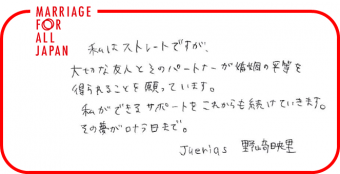 MARRIAGE
FOR
ALL
JAPAN
私はストレートですが、
大切な友人とそのパートナーが婚姻の平等を
得られることを願っています。
私ができるサポートをこれからも続けていきます。
その夢が叶う日まで。
Juerias 野崎映里